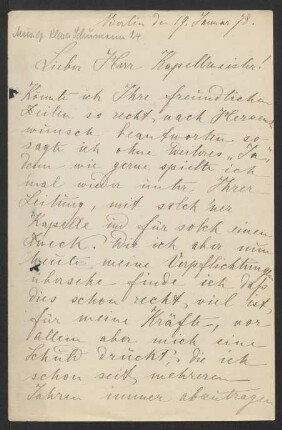 Berlin den 19. Januar 78.
Mus. ep. Clara Schumann 24.
Lieber Herr Kapellmeister!
Könnte ich Ihre freundlichen
Zeilen so recht nach Herzens
wunsch beantworten so
sagte ich ohne Weiteres „Ja“,
denn wie gerne spielte ich
mal wieder unter Ihrer
Leitung, mit solch'ner
Kapelle und für solch einen
Zweck! Wie ich aber nun
heute meine Verpflichtungen
übersehe finde ich daß
dies schon recht viel ist,
für meine Kräfte, vor
allem aber mich eine
Schuld drückt, die ich
schon seit mehreren
Jahren immer abzutragen